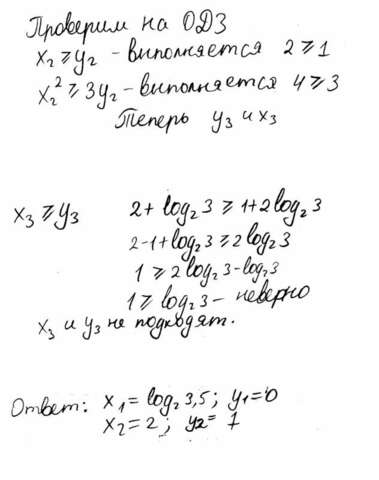 Проверим на ОДЗ
x₂ ⩾ y₂ - выполняется 2 ⩾ 1
x₂² ⩾ 3y₂ - выполняется 4 ⩾ 3
Теперь y₃ и x₃
x₃ ⩾ y₃ 2 + log₂3 ⩾ 1 + 2log₂3
2-1+log₂3 ⩾ 2log₂3
1 ⩾ 2log₂3 - log₂3
1 ⩾ log₂3 - неверно
x₃ и y₃ не подходят.
Ответ: x₁ = log₂3,5; y₁=0
x₂ = 2; y₂ = 1